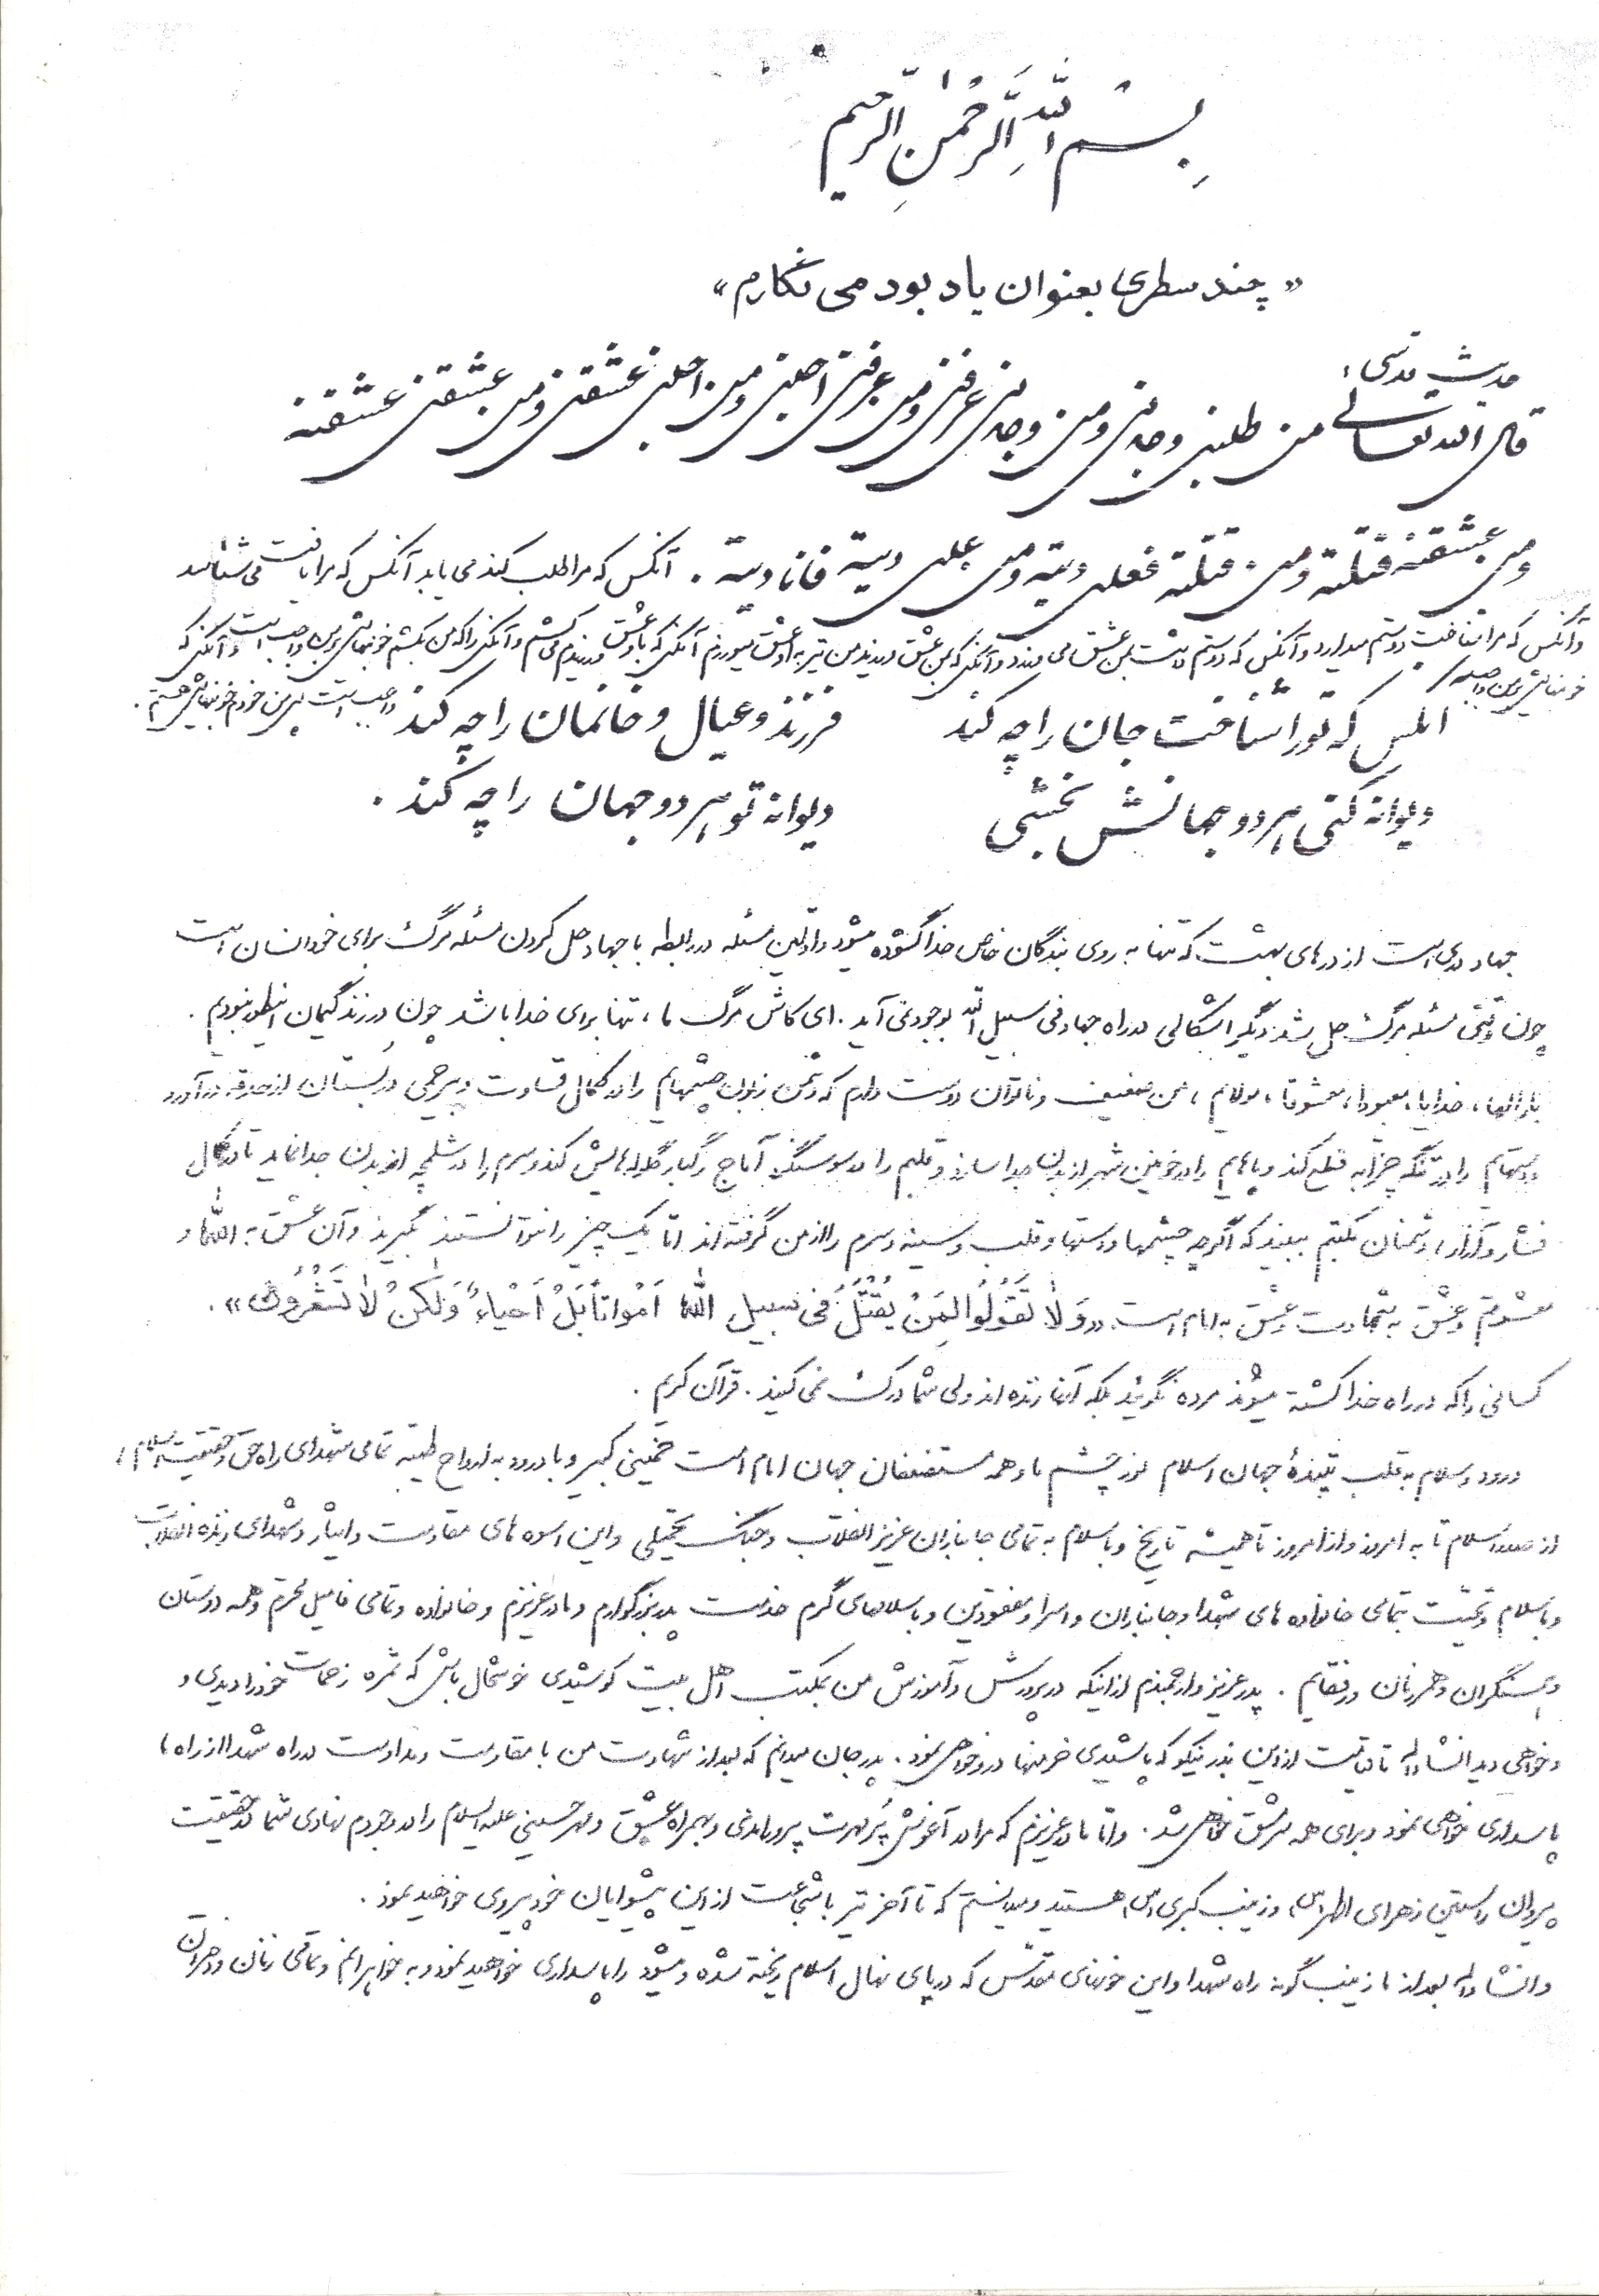 بِسْمِ اللهِ الرَّحْمٰنِ الرَّحیم
«چند سطری بعنوان یادبود می نگارم»
حدیث قدسی:
قال الله تعالی من طلبنی وجدنی و من وجدنی عرفنی و من عرفنی احبنی و من احبنی عشقنی و من عشقنی عشقته
و من عشقته قتلته و من قتلته فعلی دیته و من علی دیته فانا دیته . آنکس که مرا طلب کند می یابد آنکس که مرا یافت می شناسد
و آنکس که مرا شناخت دوستم میدارد و آنکس که دوستم داشت بمن عشق می ورزد و آنکس که بمن عشق ورزید من نیز به او عشق میورزم آنکس که باو عشق ورزیدم می کشم و آنکس را که من بکشم خونبهایش بر من واجب است و آنکس که
خونبهایش بر من واجب
واجب است پس من خودم خونبهایش هستم .
آنکس که تو را شناخت جان را چه کند فرزند و عیال و خانمان را چه کند
دیوانه کنی هر دو جهانش بخشی دیوانه تو هر دو جهان را چه کند .
جهاد دری است از درهای بهشت که تنها به روی بندگان خاص خدا گشوده میشود و اولین مسئله در رابطه با جهاد حل کردن مسئله مرگ برای خود انسان است
چون وقتی مسئله مرگ حل شد دیگر اشکالی در راه جهاد فی سبیل الله بوجود نمی آید . ای کاش مرگ ما ، تنها برای خدا باشد چون در زندگیمان اینطور نبودیم .
بارالها ، خدایا ، معبودا ، معشوقا ، مولایم ، من ضعیف و ناتوان دوست دارم که دشمن زبون چشمهایم را در کمال قساوت و بیرحمی در بستان از حدقه در آورد
دستهایم را در تنگه چزابه قطع کند و پاهایم را در خونین شهر از بدن جدا سازد و قلبم را در سوسنگرد آماج رگبار گلوله هایش کند و سرم را در شلمچه از بدن جدا نماید تا در کمال
فشار و آزار ، دشمنان مکتبم ببینند که اگرچه چشمها و دستها و قلب و سینه و سرم را از من گرفته اند اما یک چیز را نتوانستند بگیرند و آن عشق به الله و
معشوقم و عشق به شهادت و عشق به امام است. «وَ لاٰ تَقُولُوا لِمَنْ یُقْتَلُ فی سَبیلِ اللهِ اَمْواتاً بَلْ اَحْیاءٌ وَ لٰکِنْ لاٰ تَشْعُرُونَ» .
کسانی را که در راه خدا کشته میشوند مرده نگوئید بلکه آنها زنده اند ولی شما درک نمی کنید . قرآن کریم .
درود و سلام به قلب تپندهٔ جهان اسلام نور چشم ما و همه مستضعفان جهان امام امت خمینی کبیر و با درود به ارواح طیبه تمامی شهدای راه حق و حقیقت اسلام ،
از صدر اسلام تا به امروز و از امروز تا همیشه تاریخ و با سلام به تمامی جانبازان عزیز انقلاب و جنگ تحمیلی و این اسوه های مقاومت و ایثار و شهدای زنده انقلاب
و با سلام و تحیت بتمامی خانواده های شهدا و جانبازان و اسرا و مفقودین و با سلامهای گرم خدمت پدر بزرگوارم و مادر عزیزم و خانواده و تمامی فامیل محترم و همه دوستان
و همسنگران و همرزمان و رفقایم . پدر عزیز و ارجمندم از اینکه در پرورش و آموزش من بمکتب اهل بیت کوشیدی خوشحال باش که ثمره زحمات خود را دیدی و
و خواهی دید انشاءالله تا قیامت از این بذر نیکو که پاشیدی خرمنها درو خواهی نمود . پدر جان میدانم که بعد از شهادت من با مقاومت و مداومت در راه شهدا از راه ،
پاسداری خواهی نمود و برای همه سرمشق خواهی شد . و اما مادر عزیزم که مرا در آغوش پر مهرت پروراندی و بهمراه عشق و مهر حسینی علیه السلام را در وجودم نهادی شما در حقیقت
پیروان راستین زهرای اطهر (س) و زینب کبری (س) هستید و میدانستم که تا آخر نیز با شجاعت از این پیشوایان خود پیروی خواهید نمود .
و انشاءالله بعد از ما زینب گونه راه شهدا و این خونهای مقدس که در پای نهال اسلام ریخته شده و میشود را پاسداری خواهید نمود و به خواهرانم و تمامی زنان و دختران